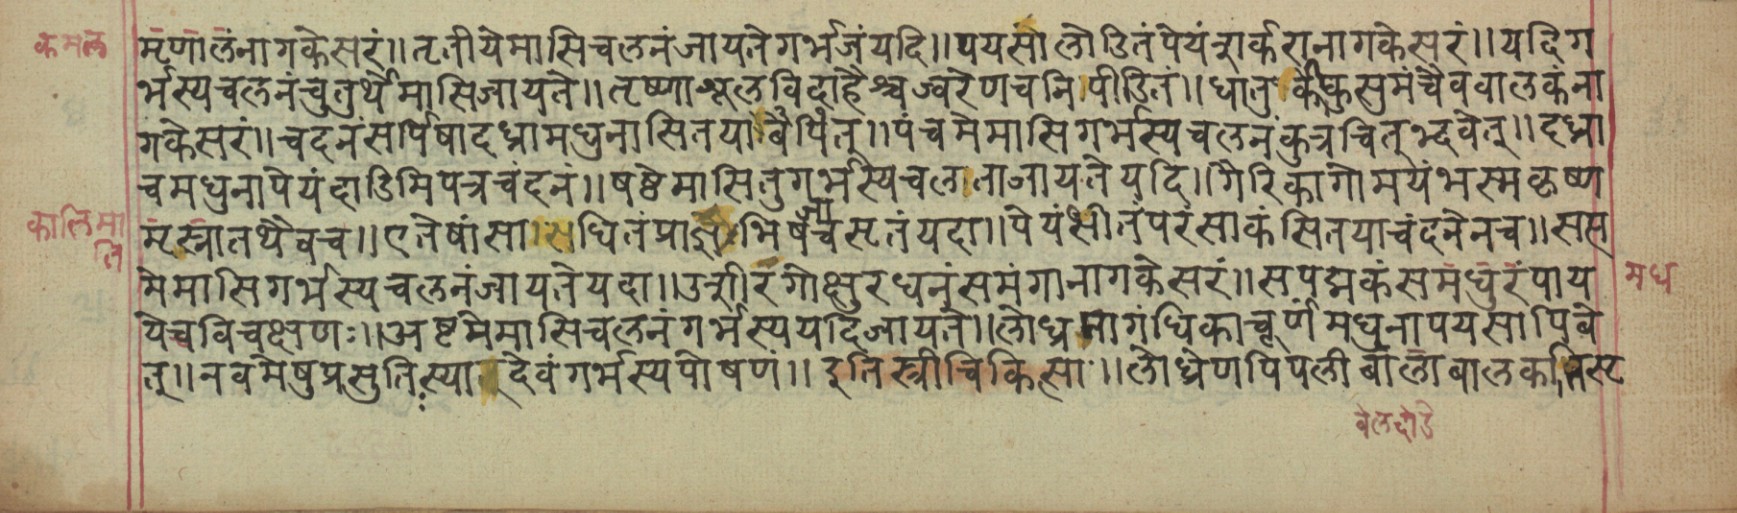 कमल
मृणालंनागकेसरं॥तृतीयेमासिचलनंजायतेगर्भजंयदि॥पयसालोडितंपेयंशर्करानागकेसरं॥यदिग
र्भस्यचलनंचतुर्थेमासिजायते॥तृष्णाशूलविदाहैश्चज्वरेणचनिपीडितं॥धातुकीकुसुमंचैववालकंना
गकेसरं॥चदनंसर्पिषादध्नामधुनासितयापिवेत्॥पंचमेमासिगर्भस्यचलनंकुत्रचित्भ्दवेत्॥दध्ना
चमधुनापेयंदाडिमिपत्रचंदनं॥षष्ठेमासितुगर्भस्यचलताजायतेयदि॥गैरिकागोमयंभस्मकृष्ण
कालिमाति
मृस्नातथैवच॥एतेषांसाधितंप्राज्ञोभिषचसृतंयदा॥पेयंशीतंपरंसाकंसितयाचंदनेनच॥सप्त
मेमासिगर्भस्यचलनंजायतेयदा॥उशीरंगोक्षुरघनंसमंगानागकेसरं॥सपद्मकंसमधुरंपाय
मध
येच्चविचक्षणः॥अष्टमेमासिचलनंगर्भस्ययदिजायते॥लोध्रमागधिकाचूर्णंमधुनापयसापिवे
त्॥नवमेषुप्रसुतिःस्यात्देवंगर्भस्यपोषणं॥इतिस्त्रीचिकित्सा॥लोध्रेणपिपलीबालाबालक
वेलदोडे